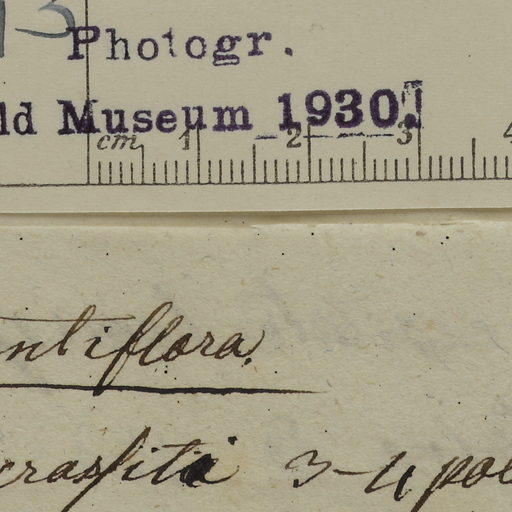 13
Photogr.
ld Museum 1930.
cm 1 2 3 4
ntiflora.
crassitia 3-4 pol